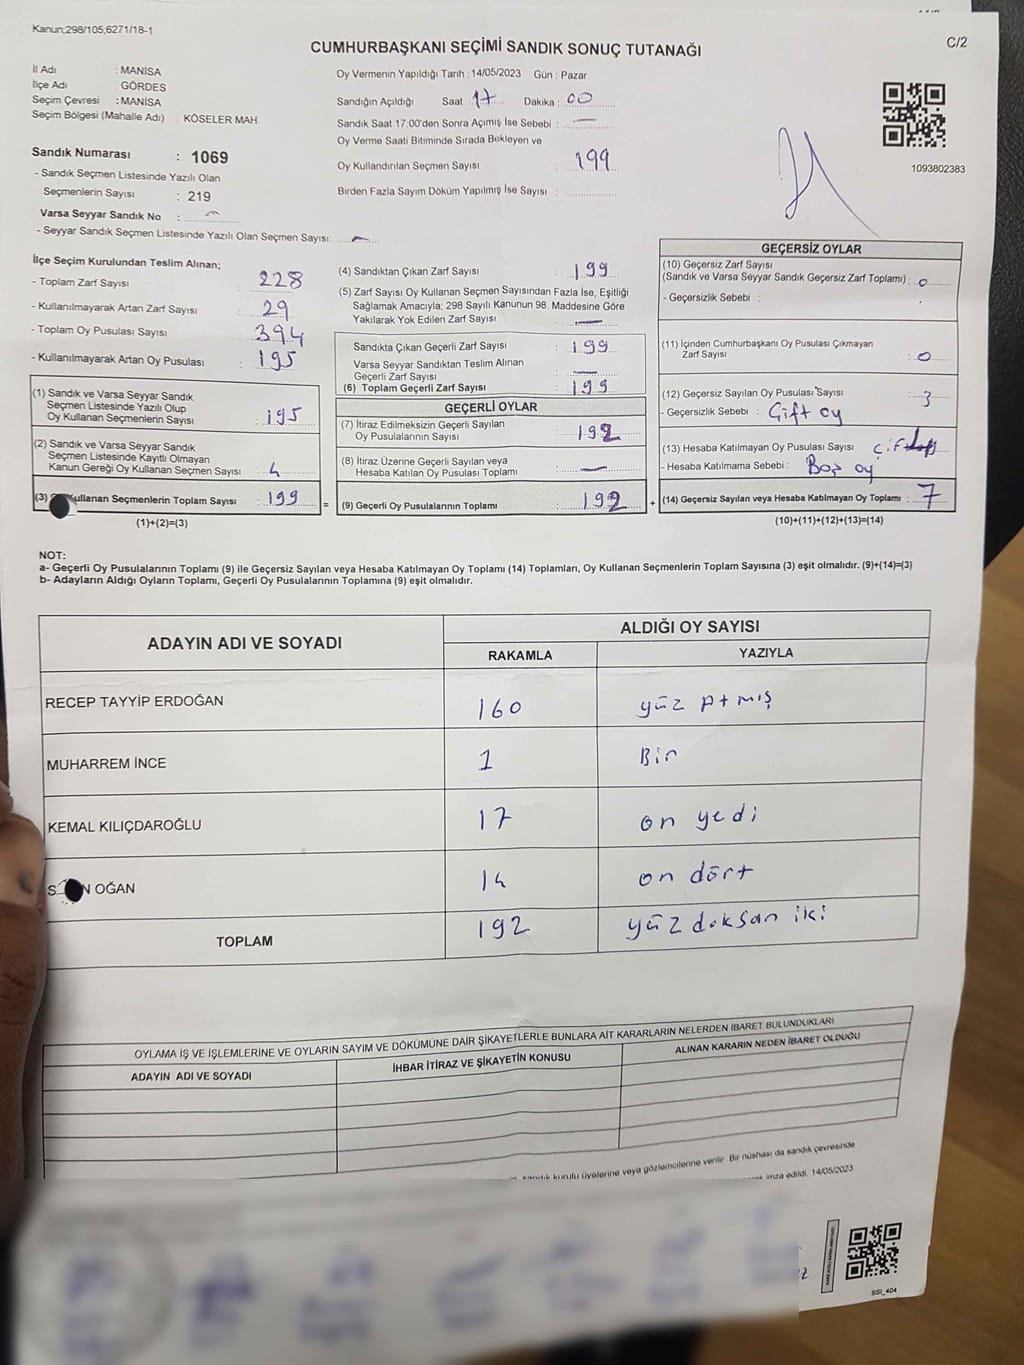 Kanun;298/105,6271/18-1
C/2
CUMHURBAŞKANI SEÇİMİ SANDIK SONUÇ TUTANAĞI
İl Adı : MANİSA
İlçe Adı : GÖRDES
Seçim Çevresi : MANİSA
Seçim Bölgesi (Mahalle Adı) : KÖSELER MAH.
Sandık Numarası : 1069
- Sandık Seçmen Listesinde Yazılı Olan
Seçmenlerin Sayısı : 219
Varsa Seyyar Sandık No : —
- Seyyar Sandık Seçmen Listesinde Yazılı Olan Seçmen Sayısı: —
Oy Vermenin Yapıldığı Tarih : 14/05/2023 Gün : Pazar
Sandığın Açıldığı Saat : 17 Dakika : 00
Sandık Saat 17:00'den Sonra Açımış İse Sebebi : —
Oy Verme Saati Bitiminde Sırada Bekleyen ve
Oy Kullandırılan Seçmen Sayısı : 199
Birden Fazla Sayım Döküm Yapılmış İse Sayısı :
1093802383
İlçe Seçim Kurulundan Teslim Alınan;
- Toplam Zarf Sayısı : 228
- Kullanılmayarak Artan Zarf Sayısı : 29
- Toplam Oy Pusulası Sayısı : 394
- Kullanılmayarak Artan Oy Pusulası : 195
(1) Sandık ve Varsa Seyyar Sandık
Seçmen Listesinde Yazılı Olup
Oy Kullanan Seçmenlerin Sayısı : 195
(2) Sandık ve Varsa Seyyar Sandık
Seçmen Listesinde Kayıtlı Olmayan
Kanun Gereği Oy Kullanan Seçmen Sayısı : 4
(3) Kullanan Seçmenlerin Toplam Sayısı : 199 =
(1)+(2)=(3)
(4) Sandıktan Çıkan Zarf Sayısı : 199
(5) Zarf Sayısı Oy Kullanan Seçmen Sayısından Fazla İse, Eşitliği
Sağlamak Amacıyla; 298 Sayılı Kanunun 98. Maddesine Göre
Yakılarak Yok Edilen Zarf Sayısı : —
Sandıkta Çıkan Geçerli Zarf Sayısı : 199
Varsa Seyyar Sandıktan Teslim Alınan
Geçerli Zarf Sayısı : —
(6) Toplam Geçerli Zarf Sayısı : 199
GEÇERLİ OYLAR
(7) İtiraz Edilmeksizin Geçerli Sayılan
Oy Pusulalarının Sayısı : 192
(8) İtiraz Üzerine Geçerli Sayılan veya
Hesaba Katılan Oy Pusulası Toplamı : —
(9) Geçerli Oy Pusulalarının Toplamı : 192 +
GEÇERSİZ OYLAR
(10) Geçersiz Zarf Sayısı
(Sandık ve Varsa Seyyar Sandık Geçersiz Zarf Toplamı) : 0
- Geçersizlik Sebebi :
(11) İçinden Cumhurbaşkanı Oy Pusulası Çıkmayan
Zarf Sayısı : 0
(12) Geçersiz Sayılan Oy Pusulası Sayısı : 3
- Geçersizlik Sebebi : Çift oy
(13) Hesaba Katılmayan Oy Pusulası Sayısı
- Hesaba Katılmama Sebebi : Boş oy
(14) Geçersiz Sayılan veya Hesaba Katılmayan Oy Toplamı : 7
(10)+(11)+(12)+(13)=(14)
NOT:
a- Geçerli Oy Pusulalarının Toplamı (9) ile Geçersiz Sayılan veya Hesaba Katılmayan Oy Toplamı (14) Toplamları, Oy Kullanan Seçmenlerin Toplam Sayısına (3) eşit olmalıdır. (9)+(14)=(3)
b- Adayların Aldığı Oyların Toplamı, Geçerli Oy Pusulalarının Toplamına (9) eşit olmalıdır.
ADAYIN ADI VE SOYADI
ALDIĞI OY SAYISI
RAKAMLA YAZIYLA
RECEP TAYYİP ERDOĞAN 160 yüz Atmış
MUHARREM İNCE 1 Bir
KEMAL KILIÇDAROĞLU 17 on yedi
OĞAN 14 on dört
TOPLAM 192 yüz doksan iki
OYLAMA İŞ VE İŞLEMLERİNE VE OYLARIN SAYIM VE DÖKÜMÜNE DAİR ŞİKAYETLERLE BUNLARA AİT KARARLARIN NELERDEN İBARET BULUNDUKLARI
ADAYIN ADI VE SOYADI
İHBAR İTİRAZ VE ŞİKAYETİN KONUSU
ALINAN KARARIN NEDEN İBARET OLDUĞU
sandık kurulu üyelerine veya gözlemcilerine verilir. Bir nüshası da sandık çevresinde
imza edildi. 14/05/2023
SSI_404